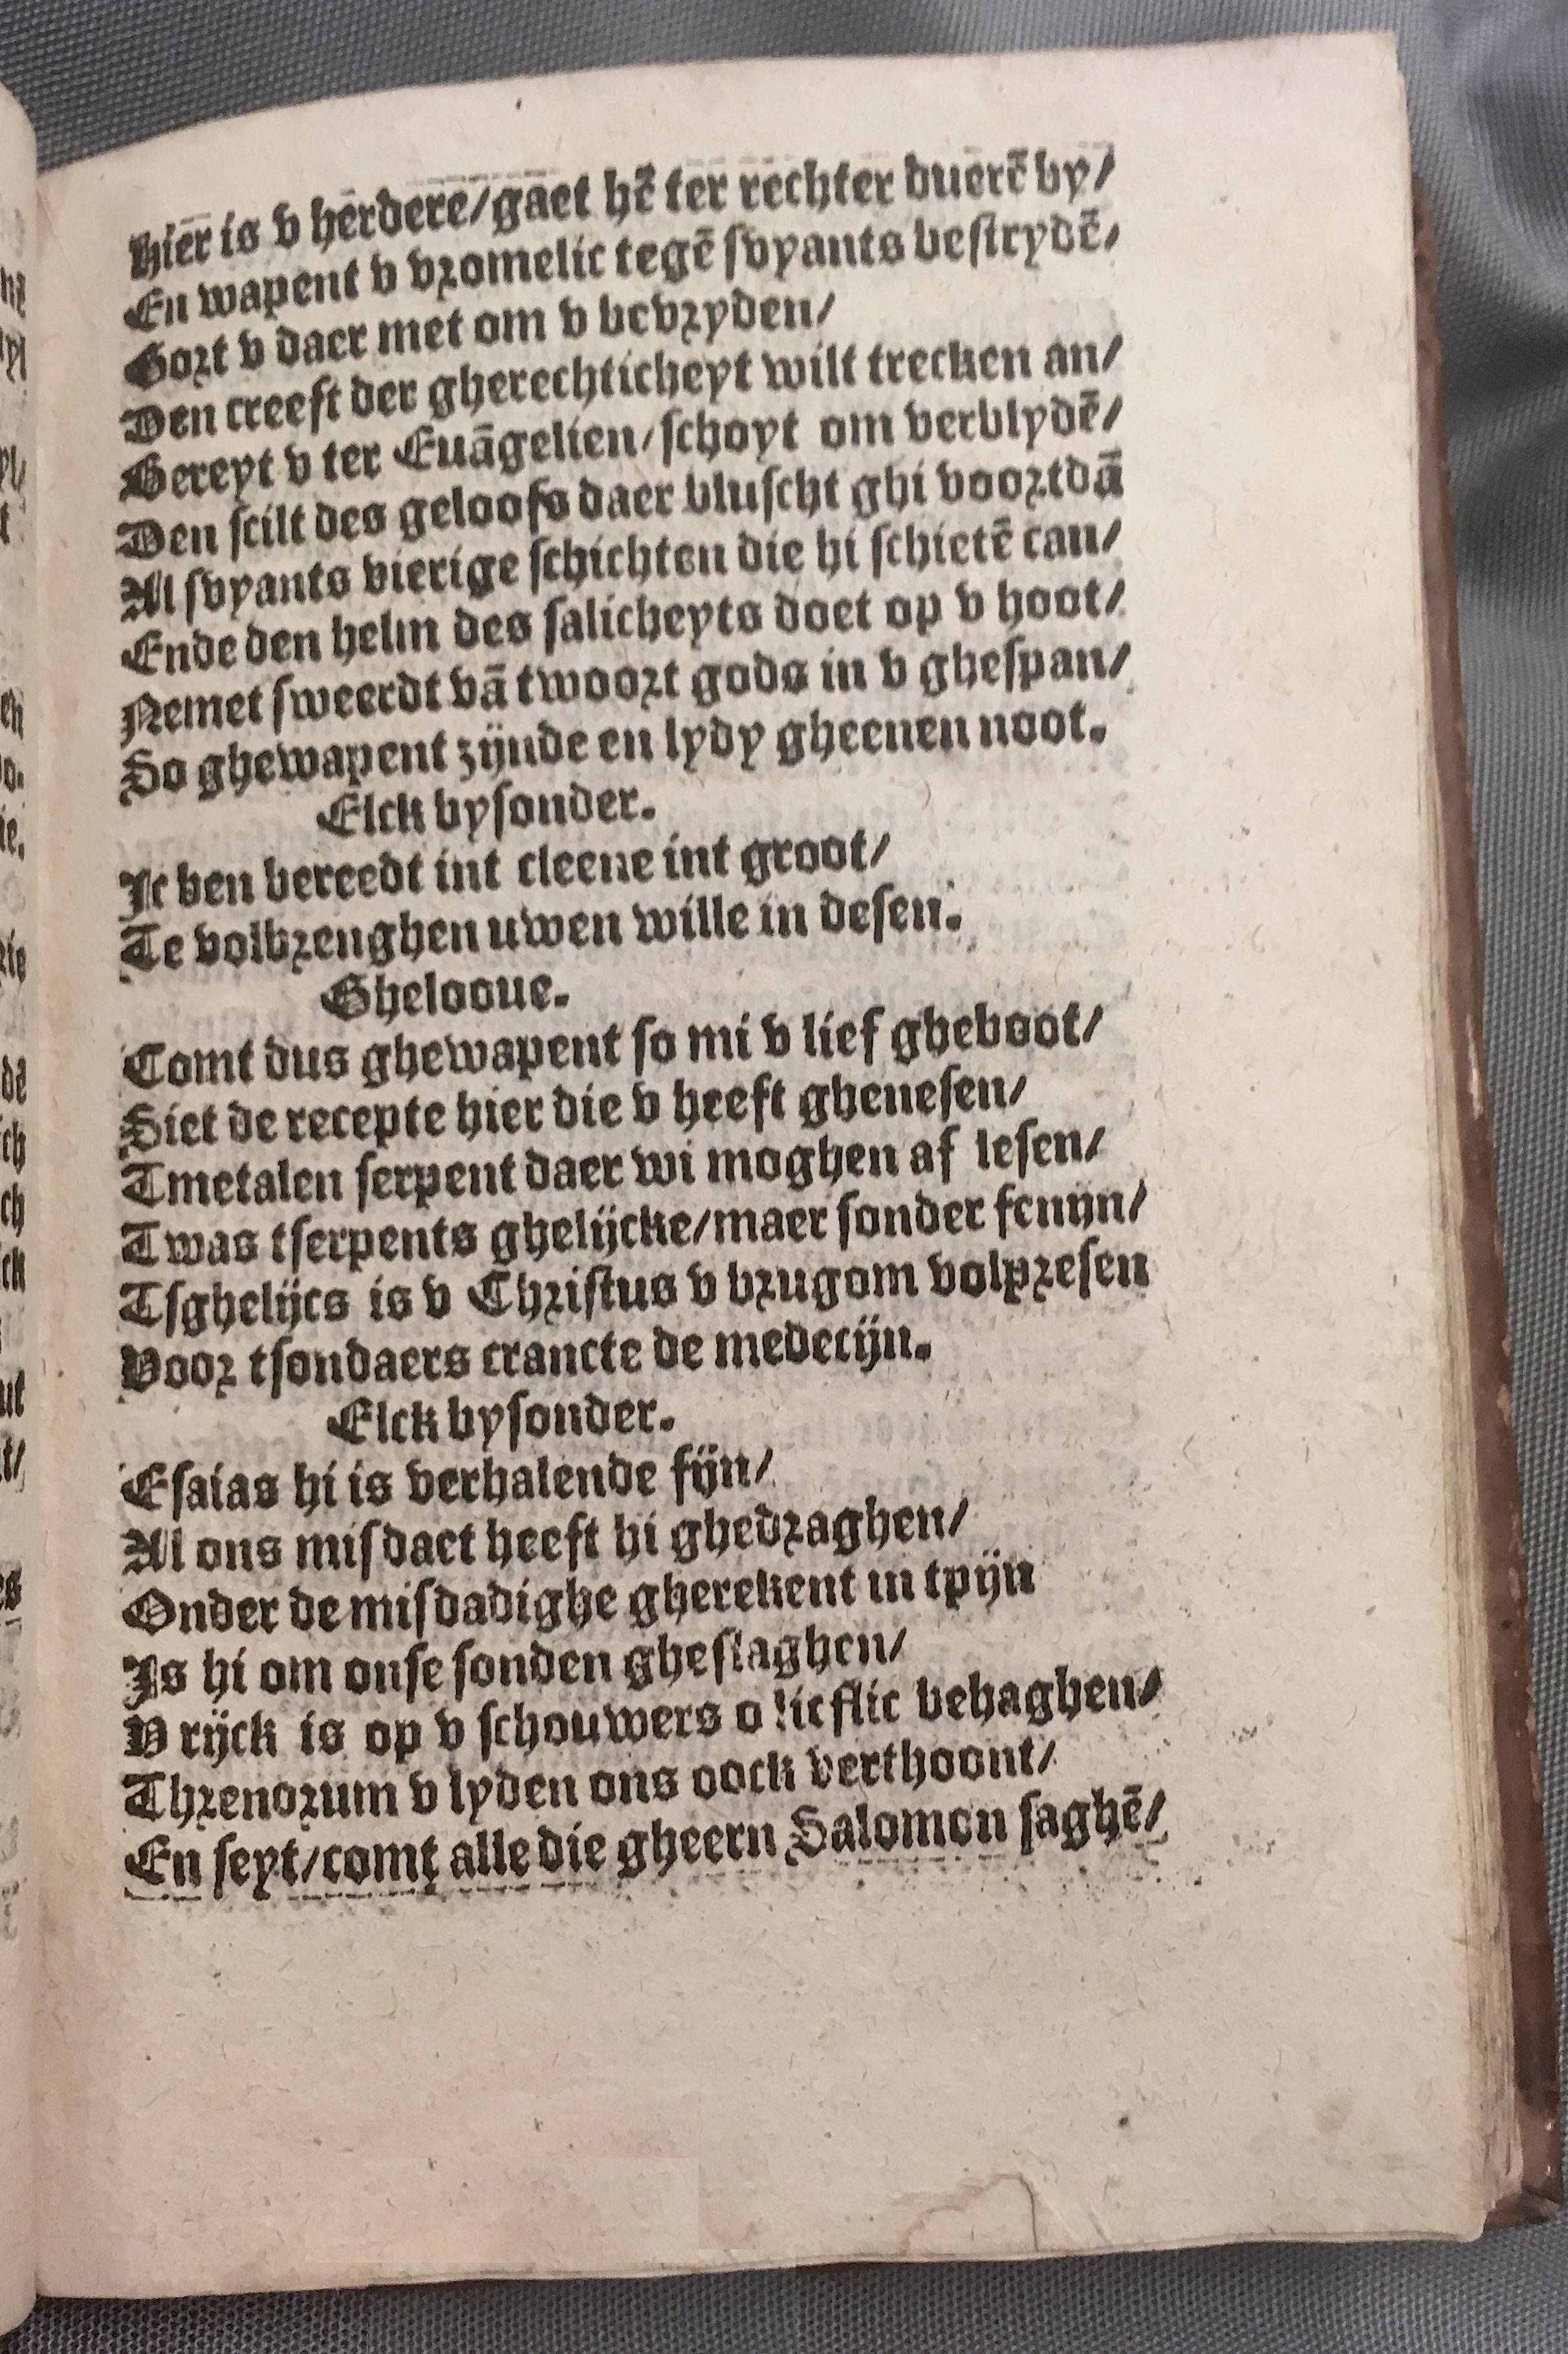 Hier is v herdere/gaet hē ter rechter duerē by/
En wapent v vromelic tegē svyants bestrydē/
Gort v daer met om v bevryden/
Den creeft der gherechticheyt wilt trecken an/
Gereyt v ter Euāgelien/schoyt om verblydē/
Den scilt des geloofs daer bluscht ghi voortdā
Al svyants vierige schichten die hi schietē can/
Ende den helm des salicheyts doet op v hoot/
Nemet sweerdt vā twoort gods in v ghespan/
So ghewapent zijnde en lydy gheenen noot.
Elck bysonder.
Ic ben bereedt int cleene int groot/
Te volbrenghen uwen wille in desen.
Ghelooue.
Comt dus ghewapent so mi v lief gheboot/
Siet de recepte hier die v heeft ghenesen/
Tmetalen serpent daer wi moghen af lesen/
Twas tserpents ghelijcke/maer sonder fenijn/
Tsghelijcs is v Christus v brugom volpresen
Voor tsondaers crancte de medecijn.
Elck bysonder.
Esaias hi is verhalende fijn/
Al ons misdaet heeft hi ghedraghen/
Onder de misdadighe gherekent in tpijn
Is hi om onse sonden gheslaghen/
V rijck is op v schouwers o lieflic behaghen/
Threnorum v lyden ons oock verthoont/
En seyt/comt alle die gheern Salomon saghē/